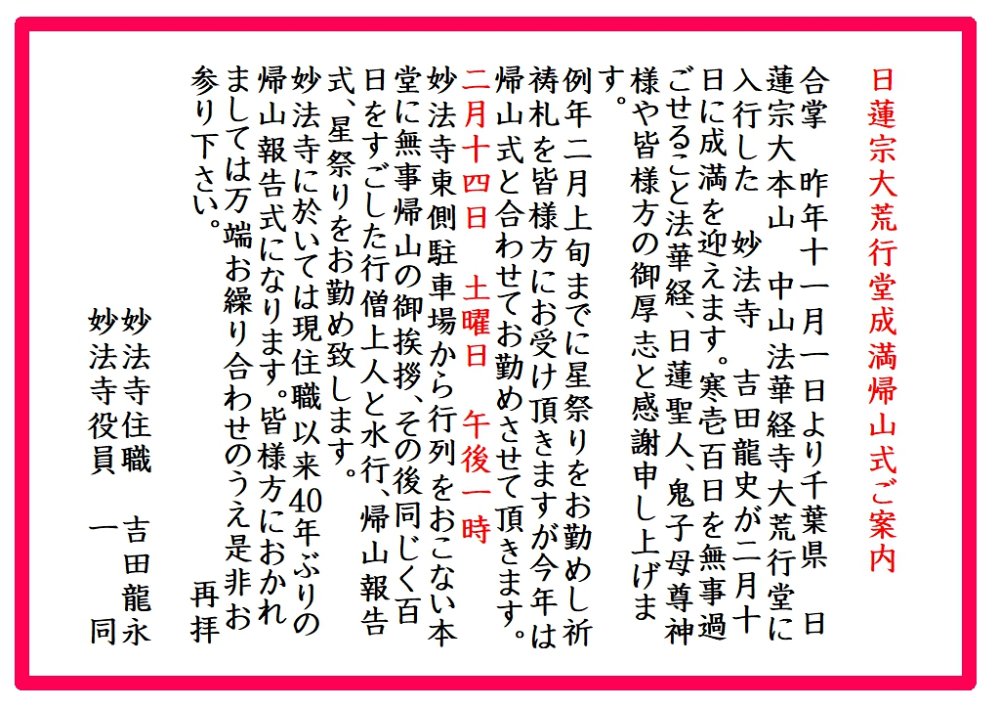 日蓮宗大荒行堂成満帰山式ご案内
合掌　昨年十一月一日より千葉県　日
蓮宗大本山　中山法華経寺大荒行堂に
入行した　妙法寺　吉田龍史が二月十
日に成満を迎えます。寒壱百日を無事過
ごせること法華経、日蓮聖人、鬼子母尊神
様や皆様方の御厚志と感謝申し上げま
す。
例年二月上旬までに星祭りをお勤めし祈
祷札を皆様方にお受け頂きますが今年は
帰山式と合わせてお勤めさせて頂きます。
二月十四日　土曜日　午後一時
妙法寺東側駐車場から行列をおこない本
堂に無事帰山の御挨拶、その後同じく百
日をすごした行僧上人と水行、帰山報告
式、星祭りをお勤め致します。
妙法寺に於いては現住職以来40年ぶりの
帰山報告式になります。皆様方におかれ
ましては万端お繰り合わせのうえ是非お
参り下さい。　再拝
妙法寺住職　吉田龍永
妙法寺役員　一　同